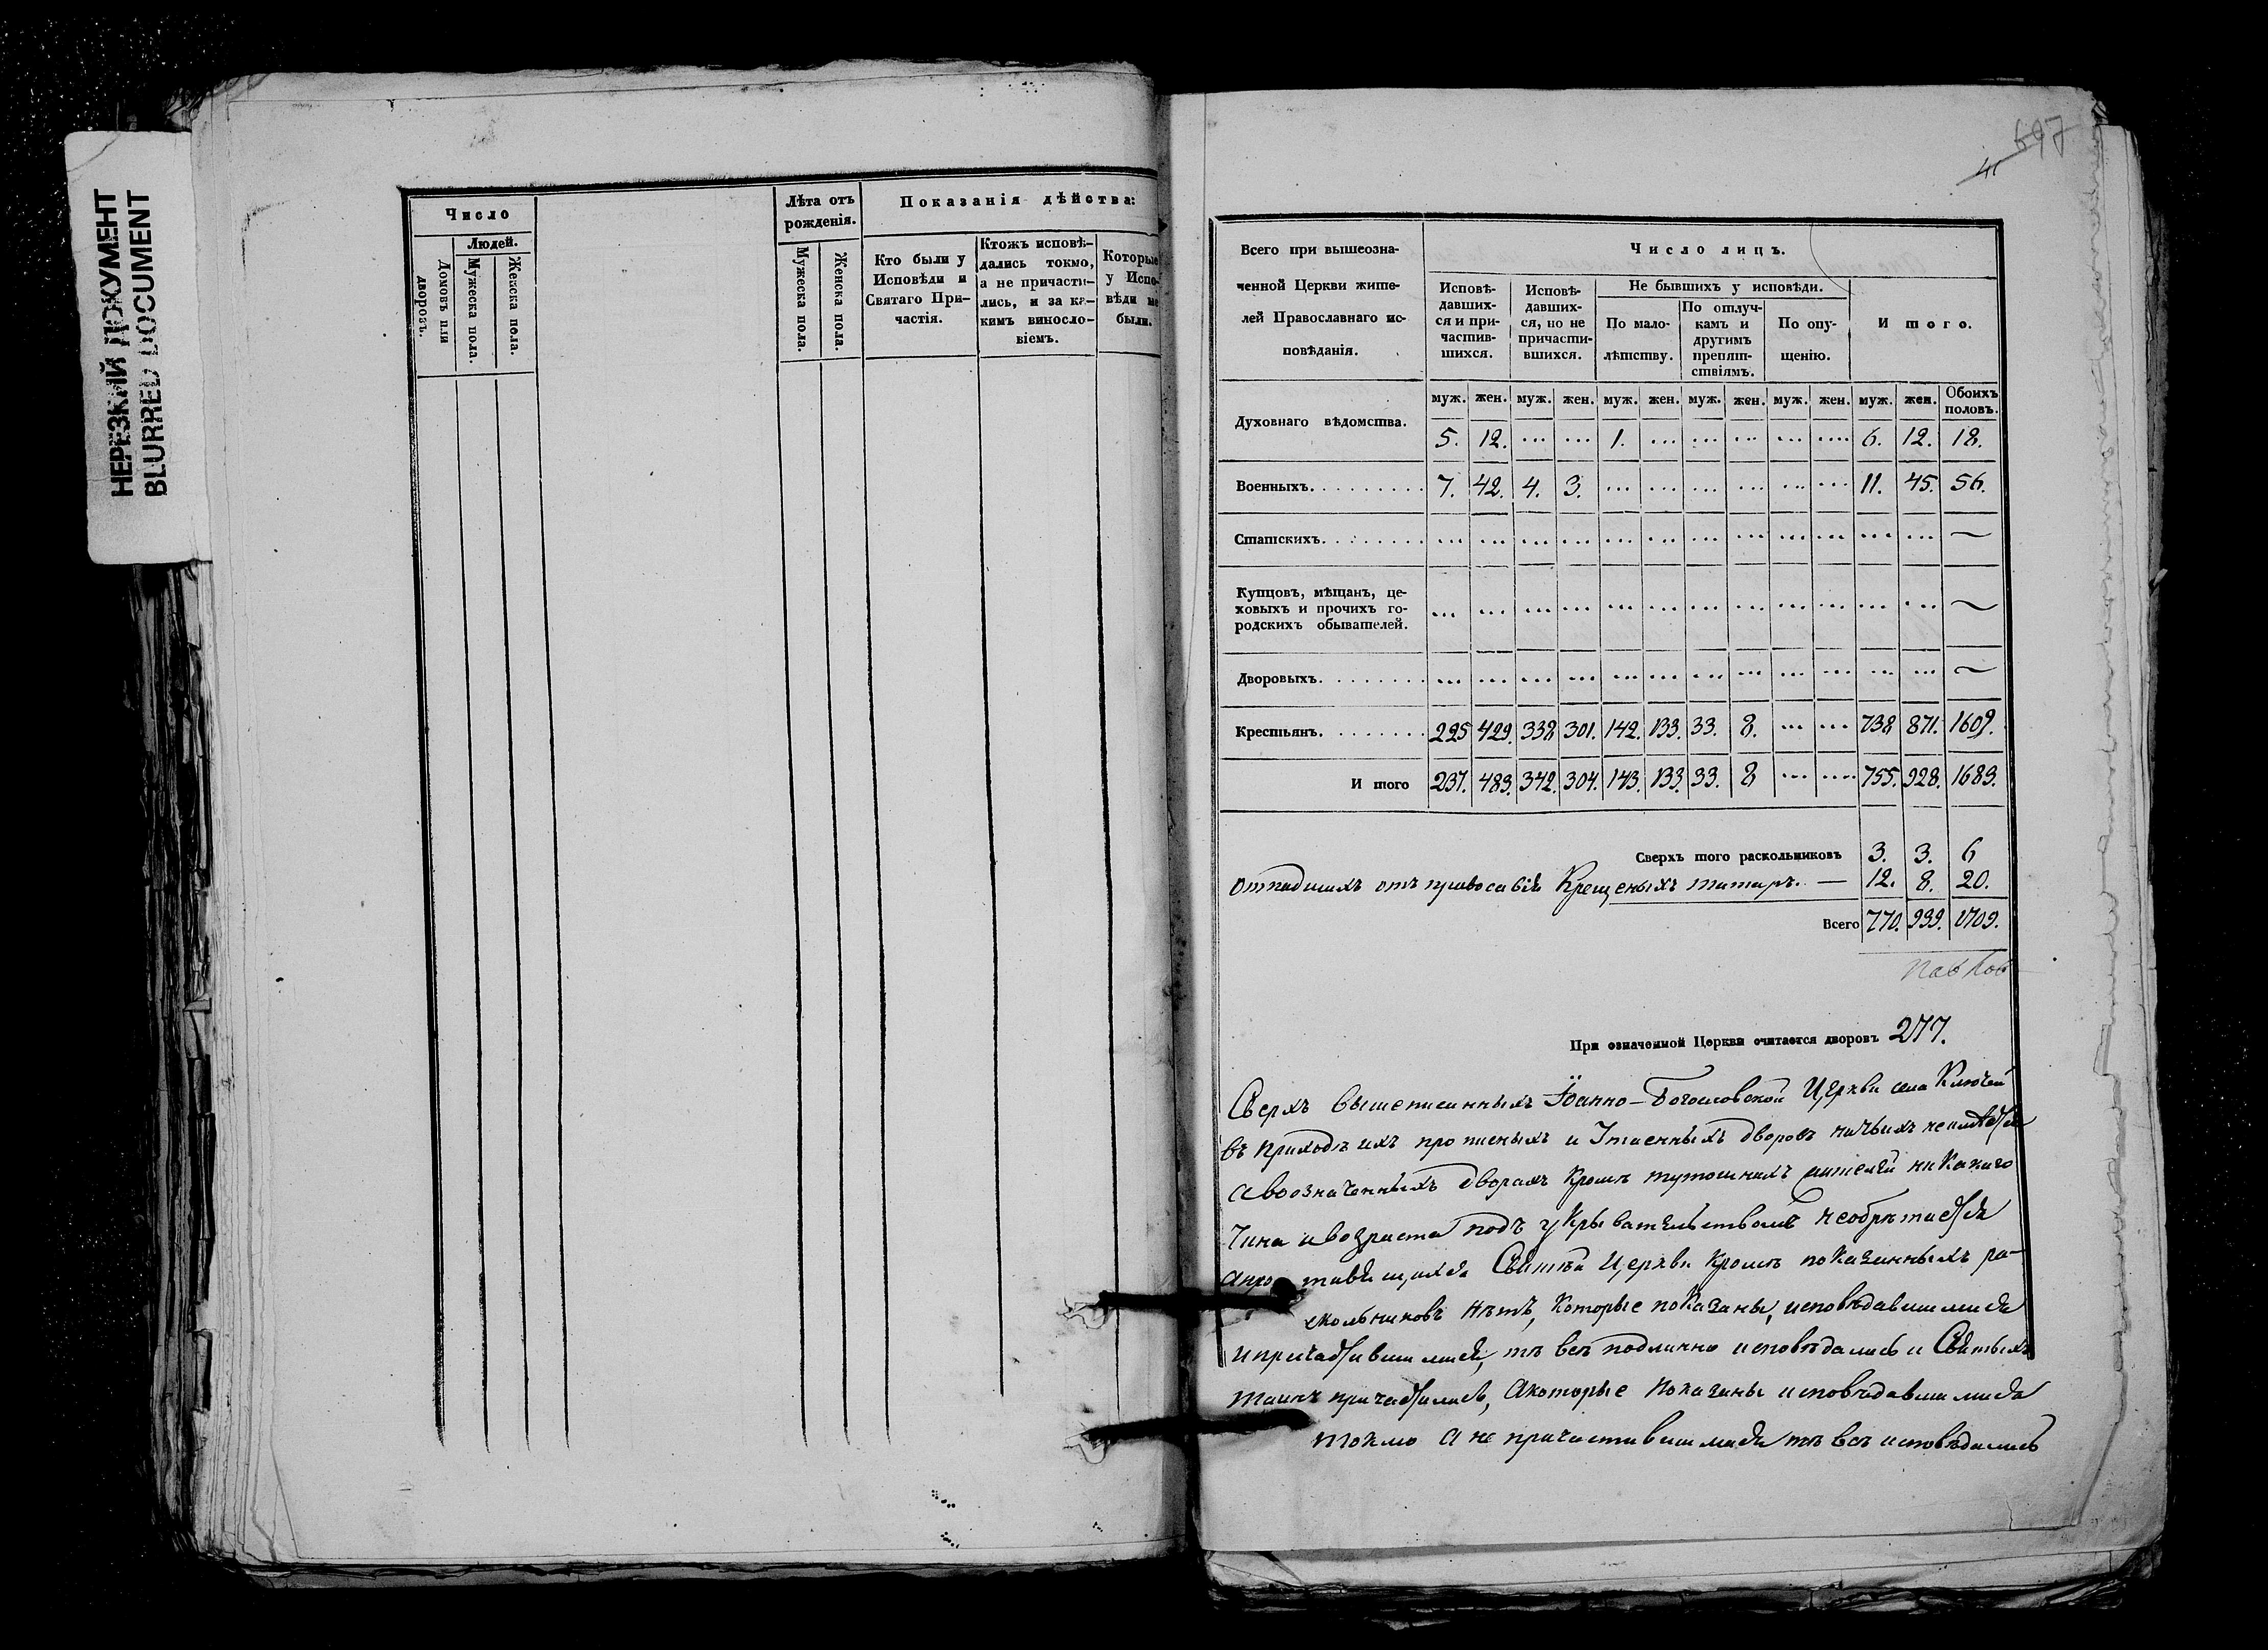 НЕРЕЗКИЙ ДОКУМЕНТ
BLURRED DOCUMENT
Число
Людей.
Домовъ или дворовъ.
Мужеска пола.
Женска пола.
Лѣта отъ рожденія.
Мужеска пола.
Женска пола.
Показанія дѣйства:
Кто были у
Исповѣди и
Святаго При-
частія.
Ктожъ исповѣ-
дались токмо,
а не причасти-
лись, и за ка-
кимъ винosло-
віемъ.
Которые
у Испо-
вѣди не
были.
697
41
Всего при вышеозна-
ченной Церкви жите-
лей Православнаго ис-
повѣданія.
Число лицъ.
Исповѣ-
давших-
ся и при-
частив-
шихся.
Исповѣ-
давших-
ся, но не
причасти-
вшихся.
Не бывшихъ у исповѣди.
По мало-
лѣтству.
По отлуч-
камъ и
другимъ
препят-
ствіямъ.
По опу-
щенію.
И того.
муж. жен. муж. жен. муж. жен. муж. жен. муж. жен. муж. жен. Обоихъ половъ.
Духовнаго вѣдомства. 5. 12. ... ... 1. ... ... ... ... ... 6. 12. 18.
Военныхъ. 7. 42. 4. 3. ... ... ... ... ... ... 11. 45. 56.
Статскихъ. ... ... ... ... ... ... ... ... ... ... ... ... —
Купцовъ, мѣщанъ, це-
ховыхъ и прочихъ го-
родскихъ обывателей. ... ... ... ... ... ... ... ... ... ... ... ... —
Дворовыхъ. ... ... ... ... ... ... ... ... ... ... ... ... —
Крестьянъ. 225 429. 338 301. 142. 133. 33. 8. ... ... 738 871. 1609.
И того 237. 483. 342. 304. 143. 133. 33. 8 ... ... 755. 928. 1683.
Сверхъ того раскольниковъ 3. 3. 6
отпадшихъ отъ правосавія Крещеныхъ татаръ. — 12. 8. 20.
Всего 770. 939. 1709.
При означенной Церкви считается дворовъ 277.
Сверхъ вышеписанныхъ Іоанно-Богословской Церкви села Ключей
въ приходѣ ихъ прописныхъ и Утаенныхъ дворовъ ничьихъ неимѣется
а воозначенныхъ дворахъ кромѣ тутошнихъ жителей никакаго
Чина и возраста подъ укрывательствомъ необрѣтается
Церкви кромѣ показанныхъ ра-
скольниковъ нѣтъ, Которые показаны, исповѣдавшимися
и причастившимися, тѣ всѣ подлинно исповѣдались и Святыхъ
таинъ причастились, Акоторые показаны исповѣдавшимися
токмо а не причастившимися тѣ всѣ исповѣдались